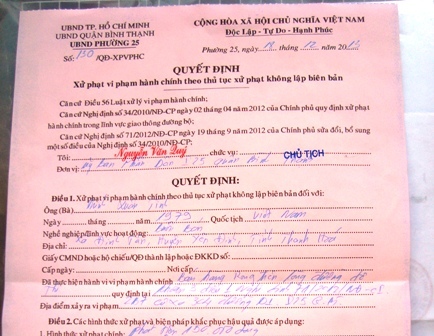 UBND TP. HỒ CHÍ MINH
UBND QUẬN BÌNH THẠNH
UBND PHƯỜNG 25
Số: 150 /QĐ-XPVPHC
CỘNG HÒA XÃ HỘI CHỦ NGHĨA VIỆT NAM
Độc Lập - Tự Do - Hạnh Phúc
Phường 25, ngày 18 tháng 12 năm 201
QUYẾT ĐỊNH
Xử phạt vi phạm hành chính theo thủ tục xử phạt không lập biên bản
Căn cứ Điều 56 Luật xử lý vi phạm hành chính;
Căn cứ Nghị định số 34/2010/NĐ-CP ngày 02 tháng 04 năm 2012 của Chính phủ quy định xử phạt
hành chính trong lĩnh vực giao thông đường bộ;
Căn cứ Nghị định số 71/2012/NĐ-CP ngày 19 tháng 9 năm 2012 của Chính phủ sửa đổi, bổ sung
một số điều của Nghị định số 34/2010/NĐ-CP;
Tôi: Nguyễn Văn Quý chức vụ: CHỦ TỊCH
Đơn vị: Ủy ban nhân dân P25 Quận Bình Thạnh
QUYẾT ĐỊNH:
Điều 1. Xử phạt vi phạm hành chính theo thủ tục xử phạt không lập biên bản đối với:
Ông (Bà)
Ngày tháng năm 1979 Quốc tịch Việt Nam
Nghề nghiệp/lĩnh vực hoạt động:
Địa chỉ: Xã Định Tân, Huyện Yên Định, Tỉnh Thanh Hoá
Giấy CMND hoặc hộ chiếu/QĐ thành lập hoặc ĐKKD số:
Cấp ngày: Nơi cấp
Đã thực hiện hành vi vi phạm hành chính: Bán hàng rong trên lòng đường đô
thị quy định tại
Địa điểm xảy ra vi phạm
Điều 2. Các hình thức xử phạt và biện pháp khắc phục hậu quả được áp dụng:
Hình thức xử phạt chính: